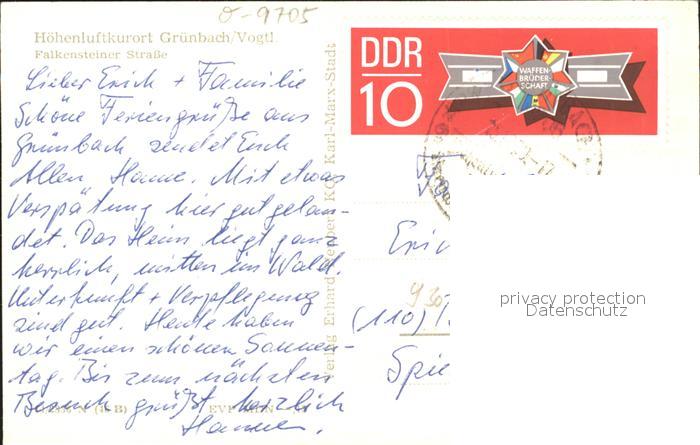 o-9705
Höhenluftkurort Grünbach/Vogtl.
Falkensteiner Straße
Lieber Erich + Familie
Schöne Feriengrüße aus
Grünbach sendet Euch
Allen Hanne. Mit etwas
Verspätung hier gut gelan-
det. Das Heim liegt ganz
herrlich, mitten im Wald.
Unterkunft + Verpflegung
sind gut. Heute haben
wir einen schönen Sonnen-
tag. Bis zum nächsten
Besuch grüßt herzlich
Hanne.
Verlag Erhard Neubert KG, Karl-Marx-Stadt
DDR
10
WAFFEN-
BRÜDER-
SCHAFT
Eric
930
(110)
Spie
privacy protection
Datenschutz